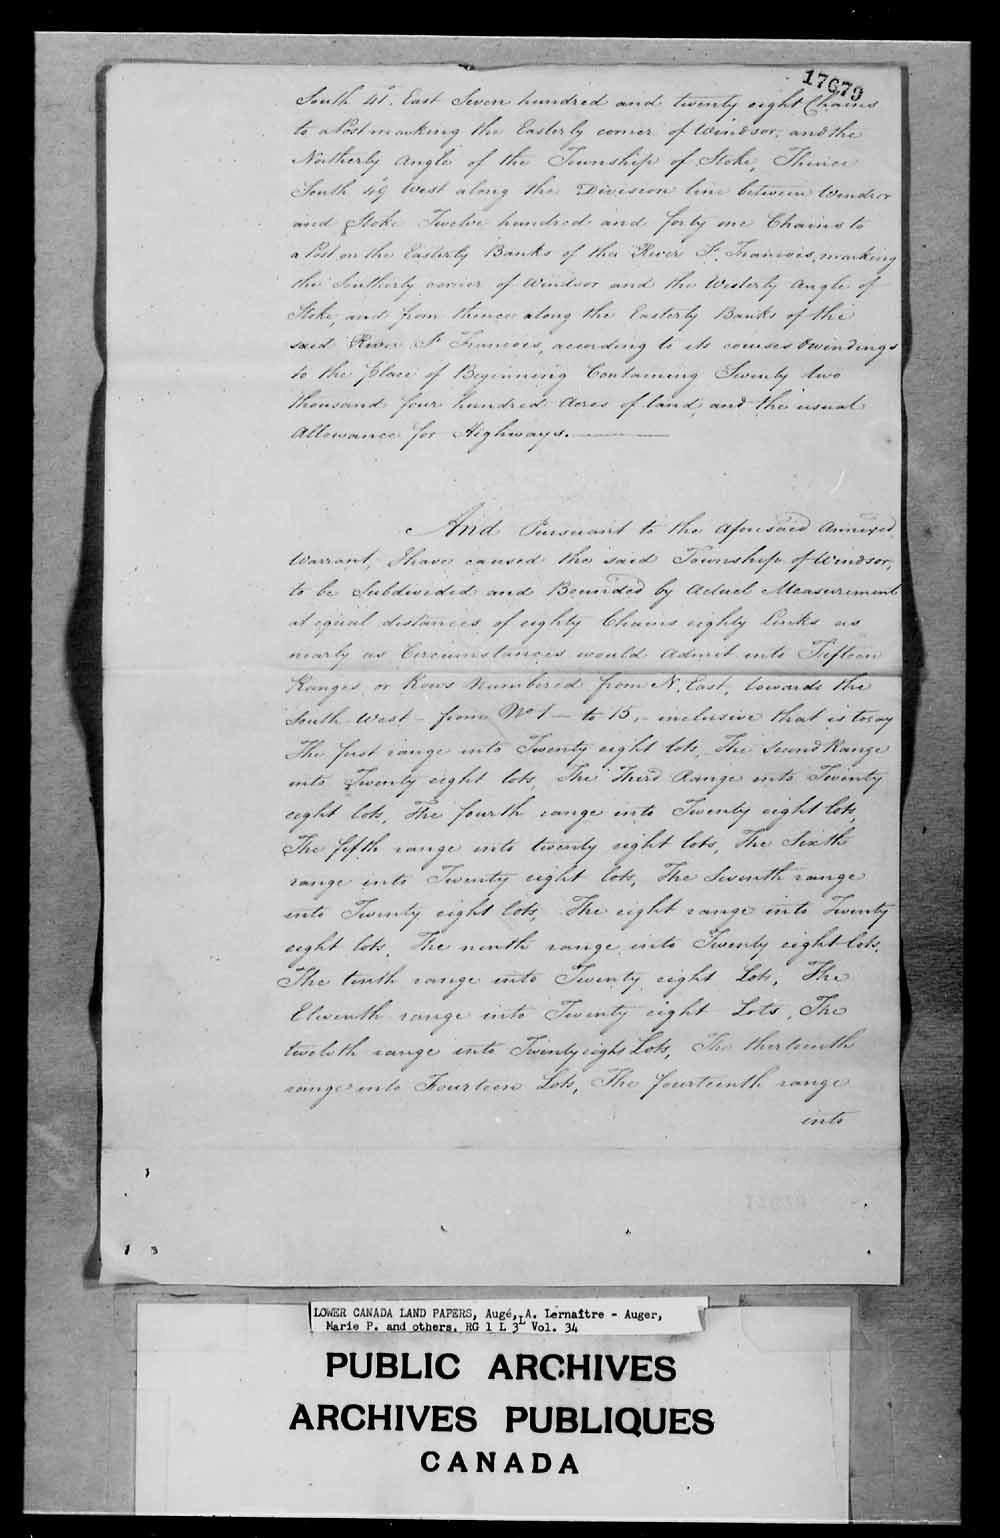 17679
South 41° East Seven hundred and twenty eight Chains
to a Post marking the Easterly corner of Windsor, and the
Northerly Angle of the Township of Stoke, Thence
South 49 West along the Division line between Windsor
and Stoke Twelve hundred and forty one Chains to
a Post on the Easterly Banks of the River St. Francois, marking
the Southerly corner of Windsor and the Westerly Angle of
Stoke, and from thence along the Easterly Banks of the
said River St Francois, according to its courses & windings
to the place of Beginning Containing Twenty two
thousand four hundred Acres of land, and the usual
Allowance for Highways.
And Pursuant to the aforesaid Annexed
Warrant, I have caused the said Township of Windsor,
to be Subdivided and Bounded by Actual Measurement
at equal distances of eighty Chains eighty Links as
nearly as Circumstances would Admit into Fifteen
Ranges, or Rows Numbered from N. East, towards the
South West - from No 1 - to 15, - inclusive that is to say
The first range into Twenty eight lots, The Second Range
into Twenty eight lots, The Third Range into Twenty
eight lots, The fourth range into Twenty eight lots,
The fifth range into twenty eight lots, The Sixth
range into Twenty eight lots, The Seventh range
into Twenty eight lots, The eight range into Twenty
eight lots, The ninth range into Twenty eight lots,
The tenth range into Twenty eight Lots, The
Eleventh range into Twenty eight Lots, The
twelvth range into Twenty eight Lots, The thirteenth
range into Fourteen Lots, The fourteenth range
into
LOWER CANADA LAND PAPERS, Augé, A. Lemaître - Auger,
Marie P. and others. RG 1 L 3L Vol. 34
PUBLIC ARCHIVES
ARCHIVES PUBLIQUES
CANADA